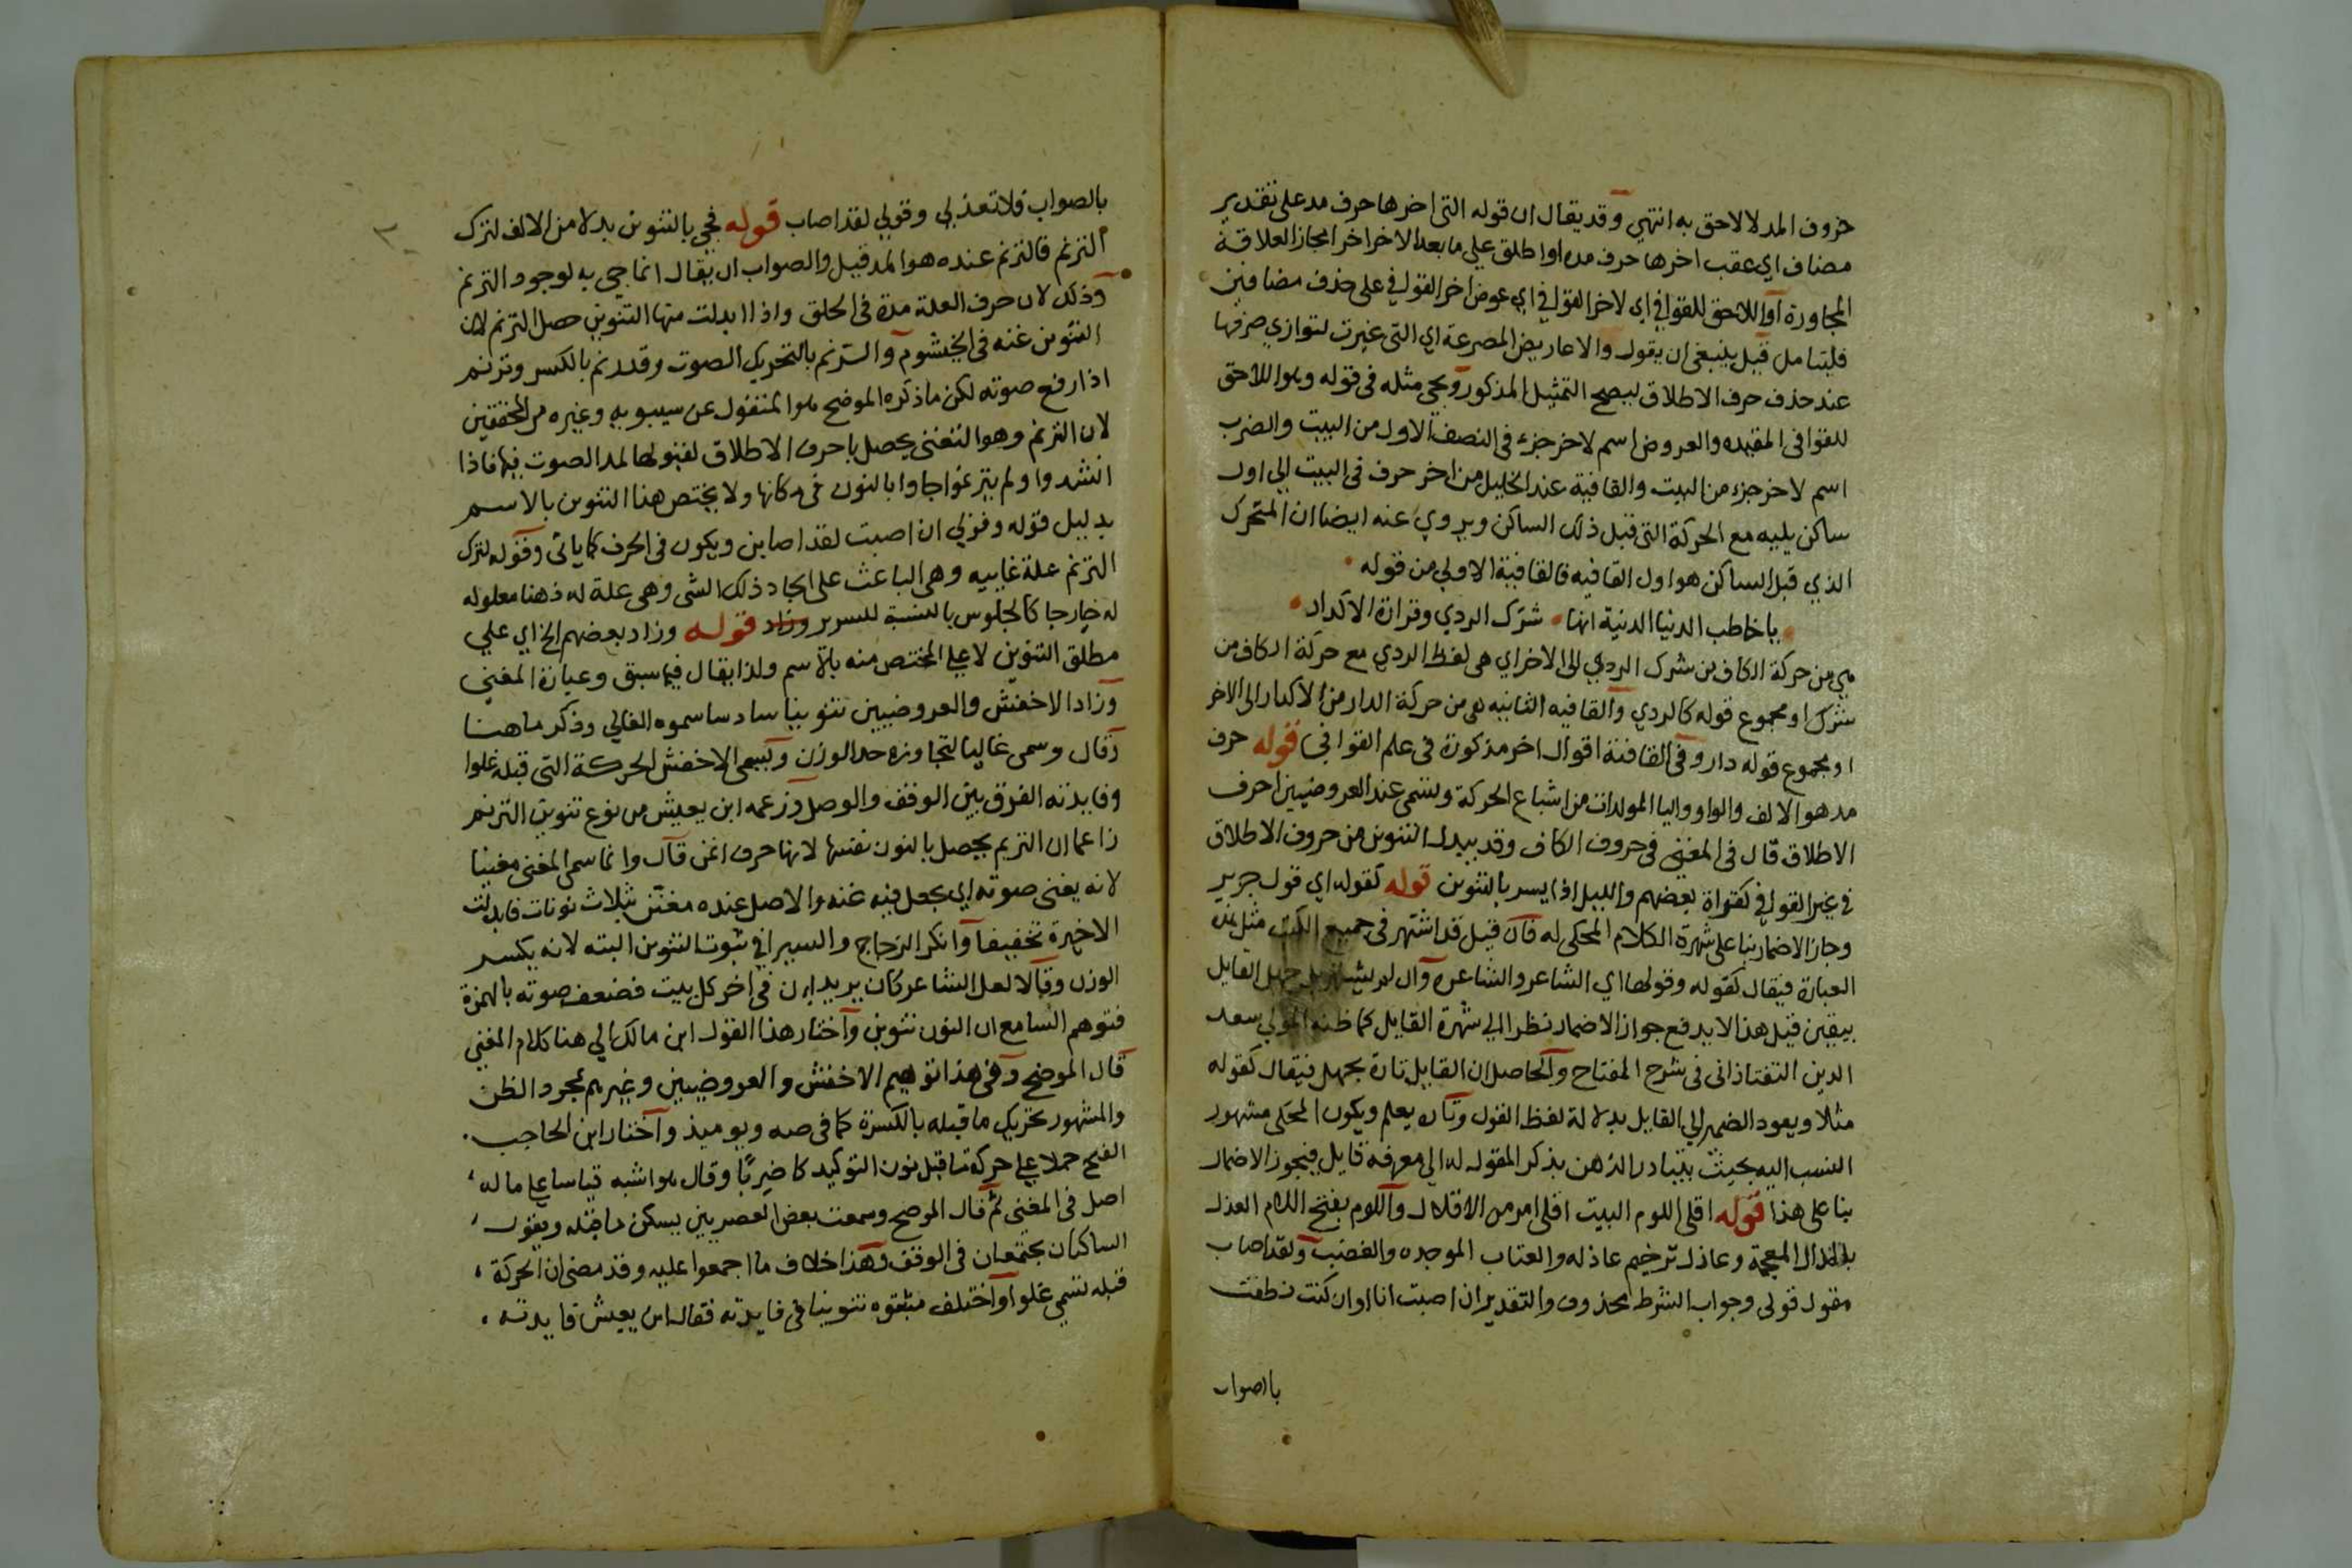 حروف المد لا لاحق به انتهي وقد يقال ان قوله التى اخرها حرف مد على تقدير
مضاف اي عقب اخرها حرف مده او اطلق علي ما بعد الاخر اخر امجاز العلاقة
المجاورة او اللاحق للقوافي اي لاخر القوافي اي عوض اخر القوافي على حذف مضافين
فليتامل قيل ينبغى ان يقول والاعاريض المصرعة اي التى غيرت لتوازي ضربها
عند حذف حرف الاطلاق ليصح التمثيل المذكور ويجي مثله فى قوله وهو اللاحق
للقوافى المقيده والعروض اسم لاخر جزء فى النصف الاول من البيت والضرب
اسم لاخر جزء من البيت والقافية عند الخليل من اخر حرف فى البيت الي اول
ساكن يليه مع الحركة التى قبل ذلك الساكن ويروي عنه ايضا ان المتحرك
الذي قبل الساكن هو اول القافيه فالقافية الاولي من قوله
ياخاطب الدنيا الدنية انها شرك الردي وقرارة الاكدار
هي من حركة الكاف من شرك الردي الى الاخر اي هى لفظ الردي مع حركة الكاف من
شرك او مجموع قوله كالردي والقافيه الثانيه هى من حركة الدار من الاكدار الى الاخر
او مجموع قوله دار وفى القافية اقوال اخر مذكورة فى علم القوافي قوله حرف
مد هو الالف والواو واليا المولدات من اشباع الحركة وتسمى عند العروضيين احرف
الاطلاق قال فى المغني فى حروف الكاف وقد يبدل التنوين من حروف الاطلاق
في غير القوافي كقراة بعضهم والليل اذا يسر بالتنوين قوله كقوله اي قول جرير
وجاز الاضمار بنا على شهرة الكلام المحكى له فان قيل قد اشتهر فى جميع الكتب مثل هذه
العبارة فيقال كقوله وقولها اي الشاعر والشاعرة وان لم يشتهر بل جهل القايل
بيقين قيل هذا لا يدفع جواز الاضمار نظرا الي شهرة القايل كما ظنه المولي سعد
الدين التفتازانى فى شرح المفتاح والحاصل ان القايل تارة يجهل فيقال كقوله
مثلا ويعود الضمير الي القايل بدلالة لفظ القول وتاره يعلم ويكون المحكى مشهور
النسب اليه بحيث يتبادر الذهن بذكر المقول له الي معرفة قايل فيجوز الاضمار
بنا على هذا قوله اقلى اللوم البيت اقلى امر من الاقلال واللوم بفتح اللام العذل
بالذال المعجمة وعاذل ترخيم عاذله والعتاب الموجده والغضب ولقد اصاب
مقول قولى وجواب الشرط محذوف والتقدير ان اصبت انا او ان كنت نطقت
بالصواب
بالصواب فلا تعذلي وقولي لقد اصاب قوله فجي بالتنوين بدلا من الالف لترك
الترنم فالترنم عنده هو المد قيل والصواب ان يقال انما جي به لوجود الترنم
وذلك لان حرف العلة مدة فى الحلق واذا ابدلت منها التنوين حصل الترنم لان
التنوين غنه فى الخيشوم والترنم بالتحريك الصوت وقد رنم بالكسر وترنم
اذا رفع صوته لكن ما ذكره الموضح هو المنقول عن سيبويه وغيره من المحققين
لان الترنم وهو التغنى يحصل باحرف الاطلاق لقبولها لمد الصوت فيها فاذا
انشدوا ولم يترنموا جاوا بالنون فى مكانها ولا يختص هذا التنوين بالاسم
بدليل قوله وقولي ان اصبت لقد اصابن ويكون فى الحرف كما ياتى وقوله لترك
الترنم علة غاييه وهى الباعث على ايجاد ذلك الشى وهى علة له ذهنا معلوله
له خارجا كالجلوس بالنسبة للسرير وزاد قوله وزاد بعضهم الخ اي علي
مطلق التنوين لا علي المختص منه بالاسم ولذا يقال فيما سبق وعبارة المغني
وزاد الاخفش والعروضيين تنوينا سادسا سموه الغالي وذكر ما هنا
وقال وسمى غاليا لتجاوزه حد الوزن ويسمى الاخفش الحركة التى قبله غلوا
وفايدته الفرق بين الوقف والوصل وزعمه ابن يعيش من نوع تنوين الترنم
زاعما ان الترنم يحصل بالنون نفسها لانها حرف اغن قال وانما سمى المغنى مغنيا
لانه يغنى صوته اي يجعل فيه غنه والاصل عنده مغنن بثلاث نونات فابدلت
الاخيرة تخفيفا وانكر الزجاج والسيرافي ثبوت التنوين البته لانه يكسر
الوزن وقالا لعل الشاعر كان يريد ان فى اخر كل بيت فضعف صوته بالهمزة
فتوهم السامع ان النون تنوين واختار هذا القول ابن مالك الي هنا كلام المغني
قال الموضح وفى هذا توهيم الاخفش والعروضيين وغيرهم بمجرد الظن
والمشهور تحريك ما قبله بالكسرة كما فى صه ويوميذ واختار ابن الحاجب
الفتح حملا علي حركة ما قبل نون التوكيد كاضربًا وقال هو اشبه قياسا علي ما له
اصل فى المغنى ثم قال الموضح وسمعت بعض العصريين يسكن ما قبله ويقول
الساكنان يجتمعان فى الوقف وهذا خلاف ما اجمعوا عليه وقد مضى ان الحركة
قبله تسمي غلوا واختلف مثبتوه تنوينا فى فايدته فقال ابن يعيش فايدته